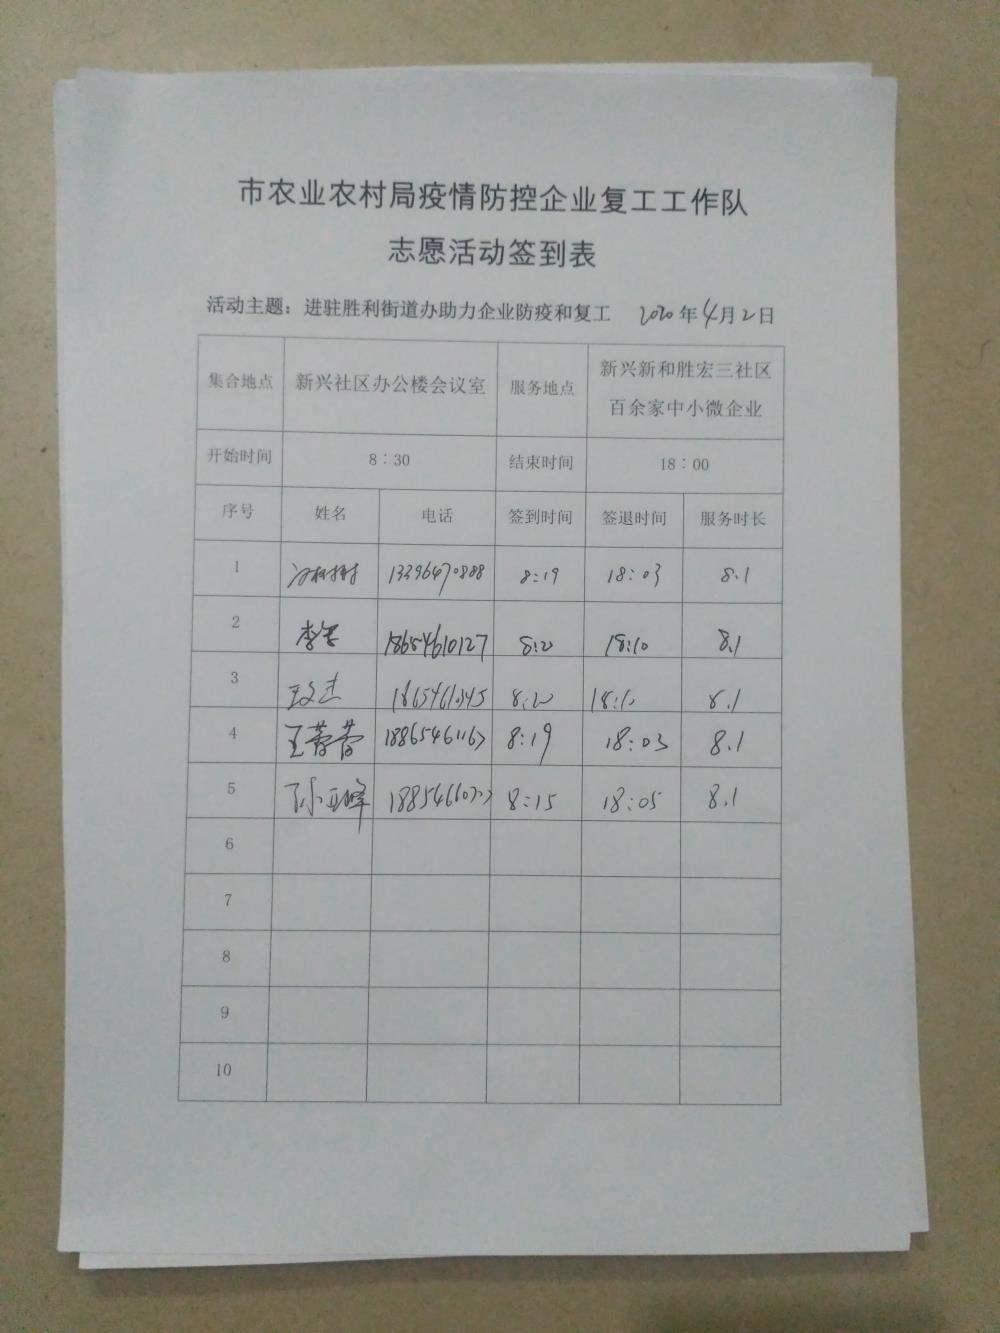 市农业农村局疫情防控企业复工工作队
志愿活动签到表
活动主题：进驻胜利街道办助力企业防疫和复工 2020年4月2日
集合地点 新兴社区办公楼会议室 服务地点 新兴新和胜宏三社区
百余家中小微企业
开始时间 8：30 结束时间 18：00
序号 姓名 电话 签到时间 签退时间 服务时长
1 13396470888 8:19 18:03 8.1
2 18654610127 8:20 18:10 8.1
3 8:20 18:10 8.1
4 王蓉蓉 8:19 18:03 8.1
5 孙亚峰 8:15 18:05 8.1
6
7
8
9
10